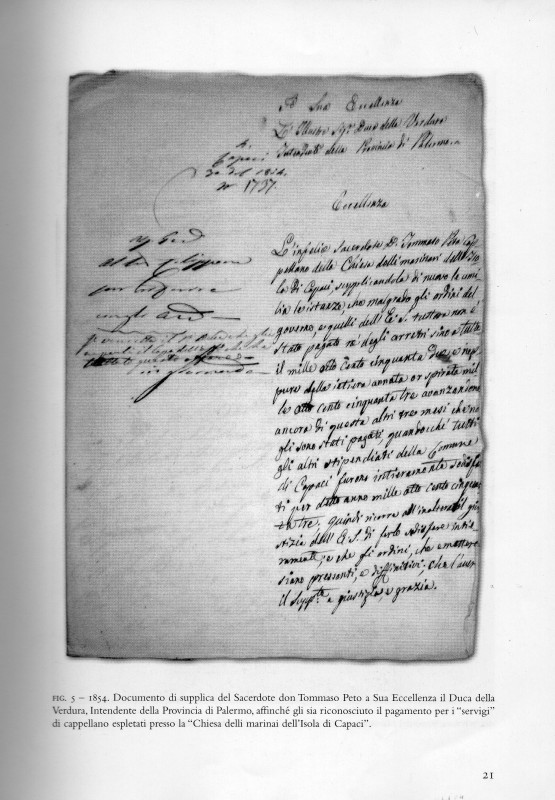 A Sua Eccellenza
L'Illustre Sigr Duca della Verdura
Intendente della Provincia di Palermo
Capaci
1854
N° 1737.
Eccellenza
L'infelice Sacerdote D. Tommaso Peto Cap-
pellano della Chiesa delli marinari dell'Iso-
la di Capaci, supplicandola di nuovo le umi-
lia le istanze, che malgrado gli ordini del
governo, e quelli dell'E. S. tuttora non è
stato pagato nè degli arretri sino a tutto
il mille otto cento cinquanta due, e nep-
pure della intiera annata or spirata mil-
le otto cento cinquanta tre avanzandone
ancora di questa altri tre mesi che non
gli sono stati pagati, quandocchè tutti
gli altri stipendiati della Comune
di Capaci furono intieramente sodisfat-
ti per detto anno mille otto cento cinquan-
ta tre. Quindi ricorre all' giu-
stizia dell'E. S. di farlo sodisfare intie-
ramente, e che gli ordini, che emettere
siano pressanti, e diffinitivi, che l'avrà
il suppte a giustizia, e grazia.
FIG. 5 – 1854. Documento di supplica del Sacerdote don Tommaso Peto a Sua Eccellenza il Duca della
Verdura, Intendente della Provincia di Palermo, affinché gli sia riconosciuto il pagamento per i “servigi”
di cappellano espletati presso la “Chiesa delli marinai dell’Isola di Capaci”.
21